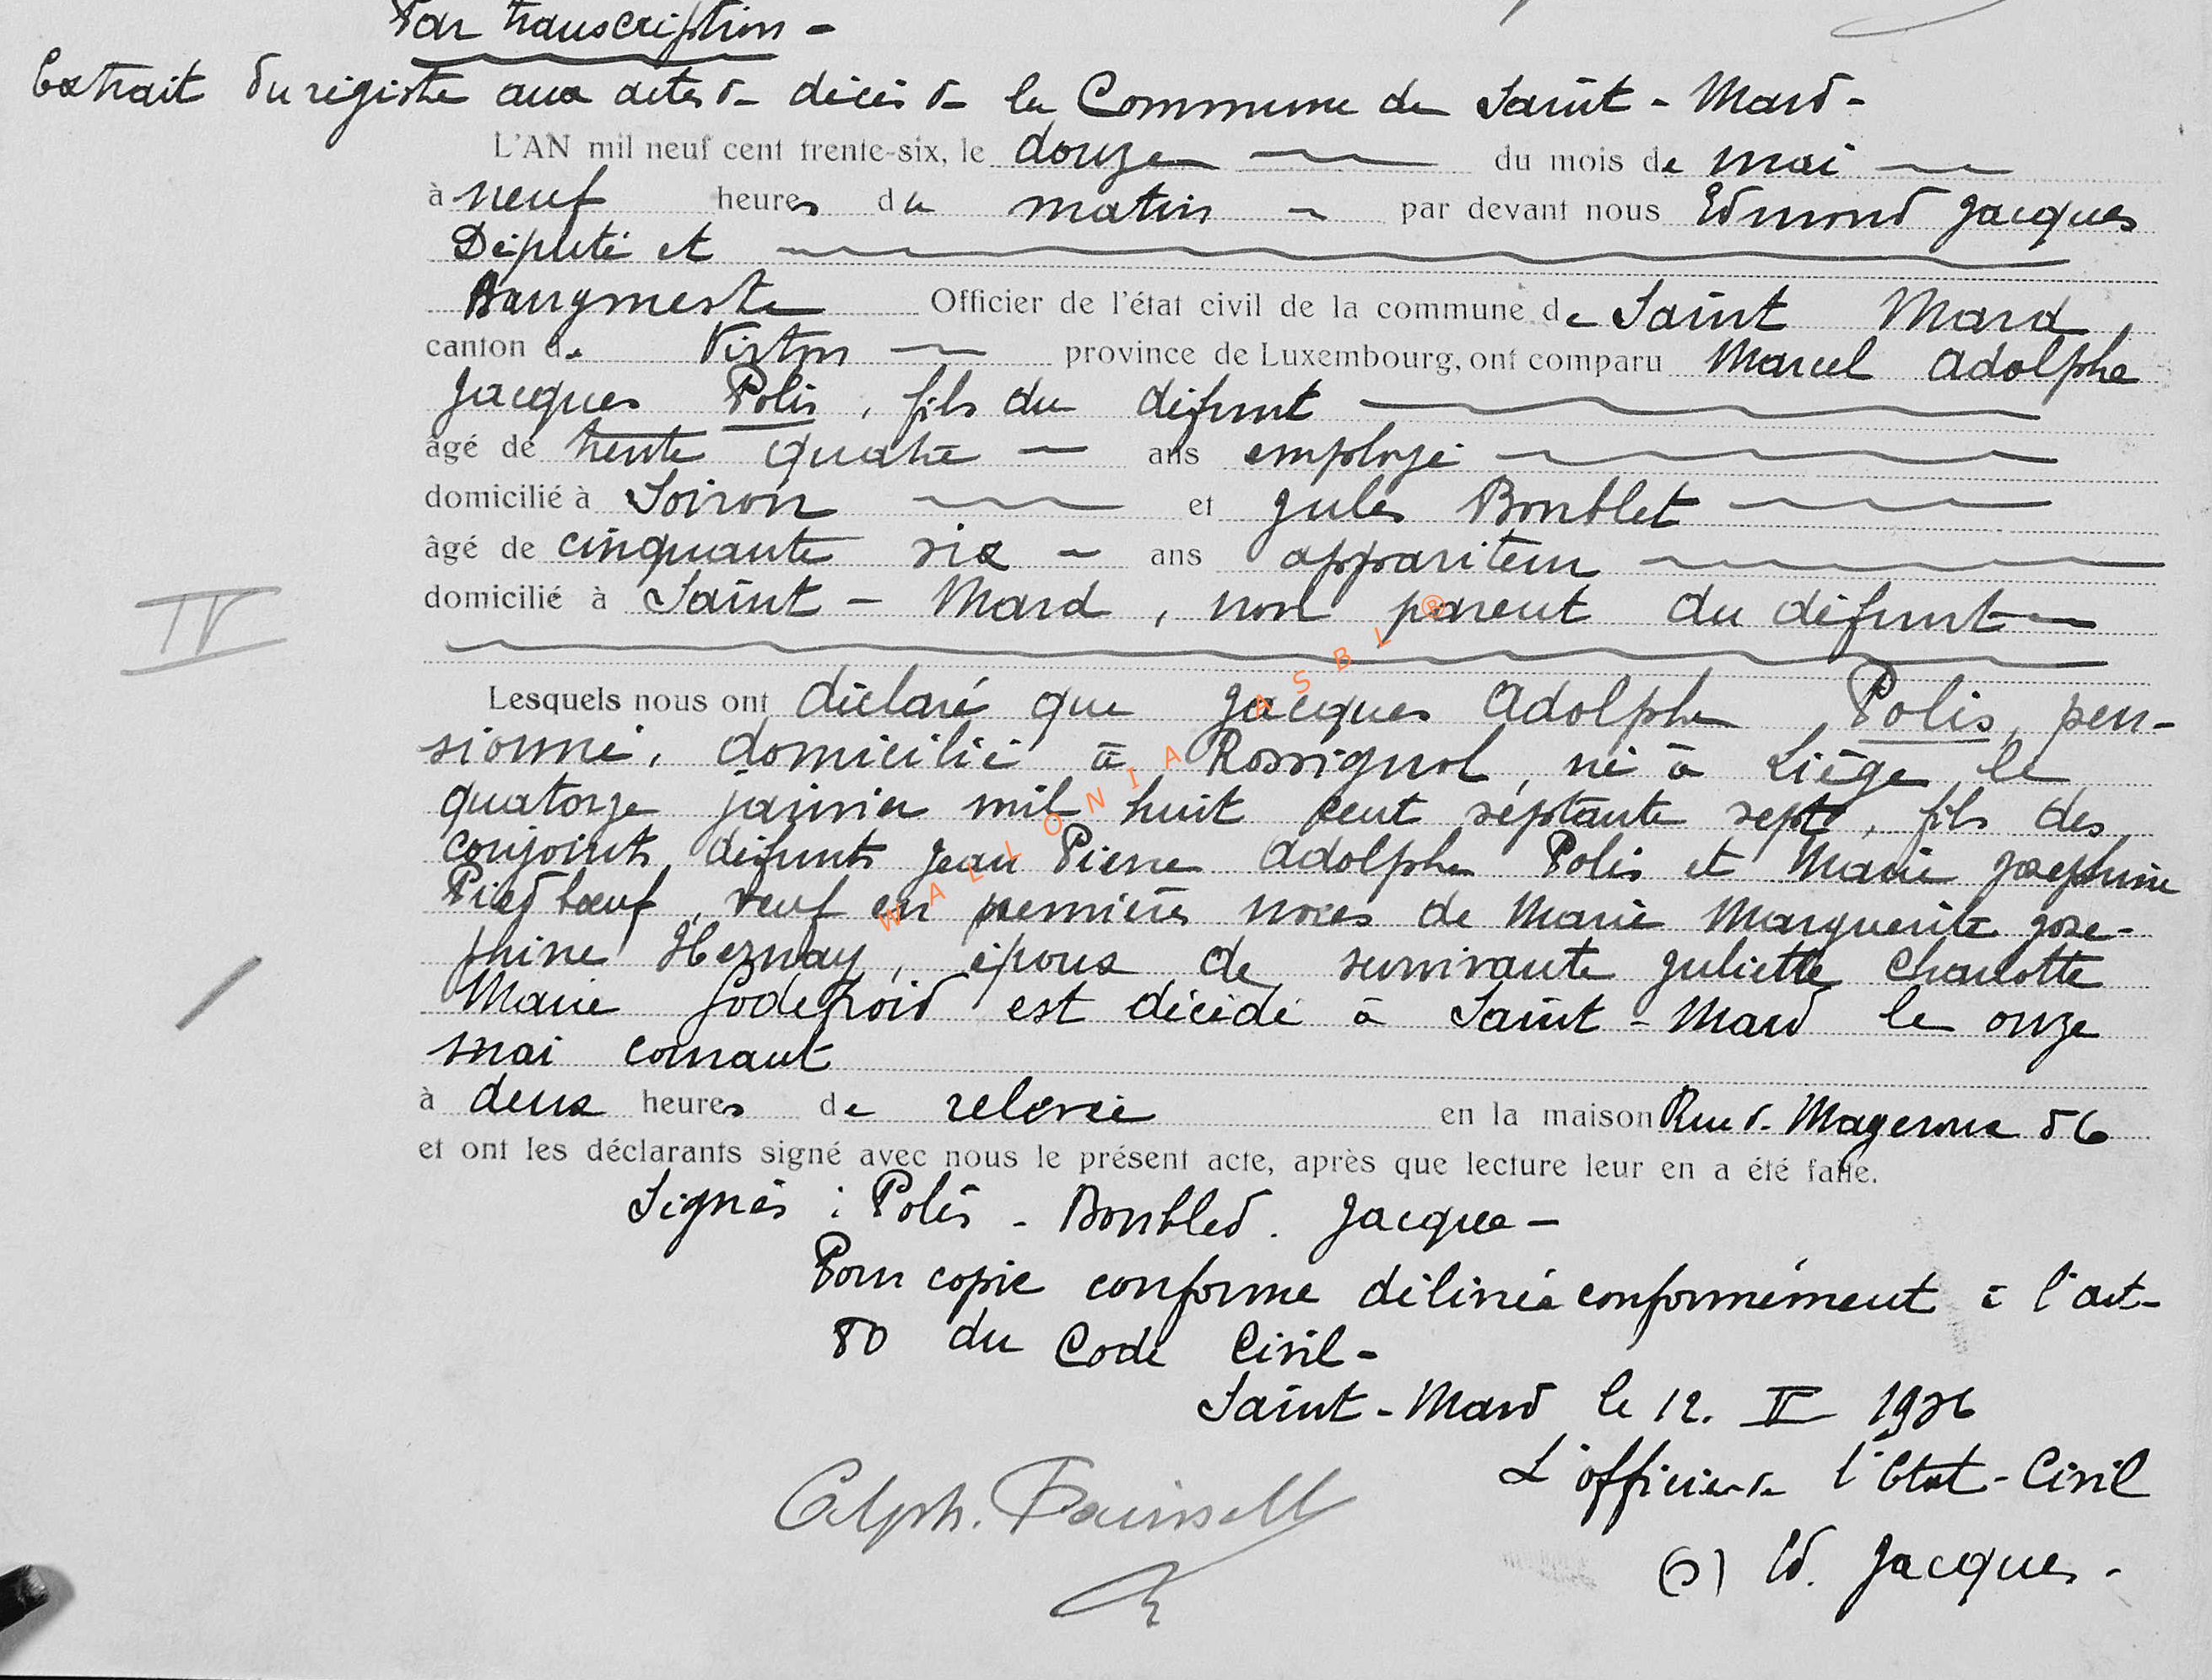 Par transcription -
Extrait du registre aux actes de décès de la Commune de Saint - Mard -
L'AN mil neuf cent trente-six, le douze du mois de mai
à neuf heures du matin par devant nous Edmond Jacques
Député et
Bourgmestre Officier de l'état civil de la commune de Saint Mard,
canton de Virton province de Luxembourg, ont comparu Marcel Adolphe
Jacques Polis, fils du défunt
âgé de trente quatre ans employé
domicilié à Soiron et Jules Bonblet
âgé de cinquante six ans appariteur
domicilié à Saint - Mard, non parent du défunt
IV
Lesquels nous ont déclaré que Jacques Adolphe Polis, pen-
sionné, domicilié à Rossignol, né à Liège le
quatorze janvier mil huit cent septante sept, fils des
conjoints défunts Jean Pierre Adolphe Polis et Marie Joséphine
Piedboeuf, veuf en premières noces de Marie Marguerite José-
phine Heznay, époux de survivante Juliette Charlotte
Marie Godefroid est décédé à Saint - Mard le onze
mai courant
à deux heures de relevée en la maison Rue d. Mageroux 56
et ont les déclarants signé avec nous le présent acte, après que lecture leur en a été faite.
Signés : Polis - Bonbled. Jacques -
Pour copie conforme délivrée conformément à l'art-
80 du Code Civil -
Saint - Mard le 12. V 1936
L'officier de l'Etat - Civil
(s) Ed. Jacques -
Alph.
WALLONIA ASBL ®